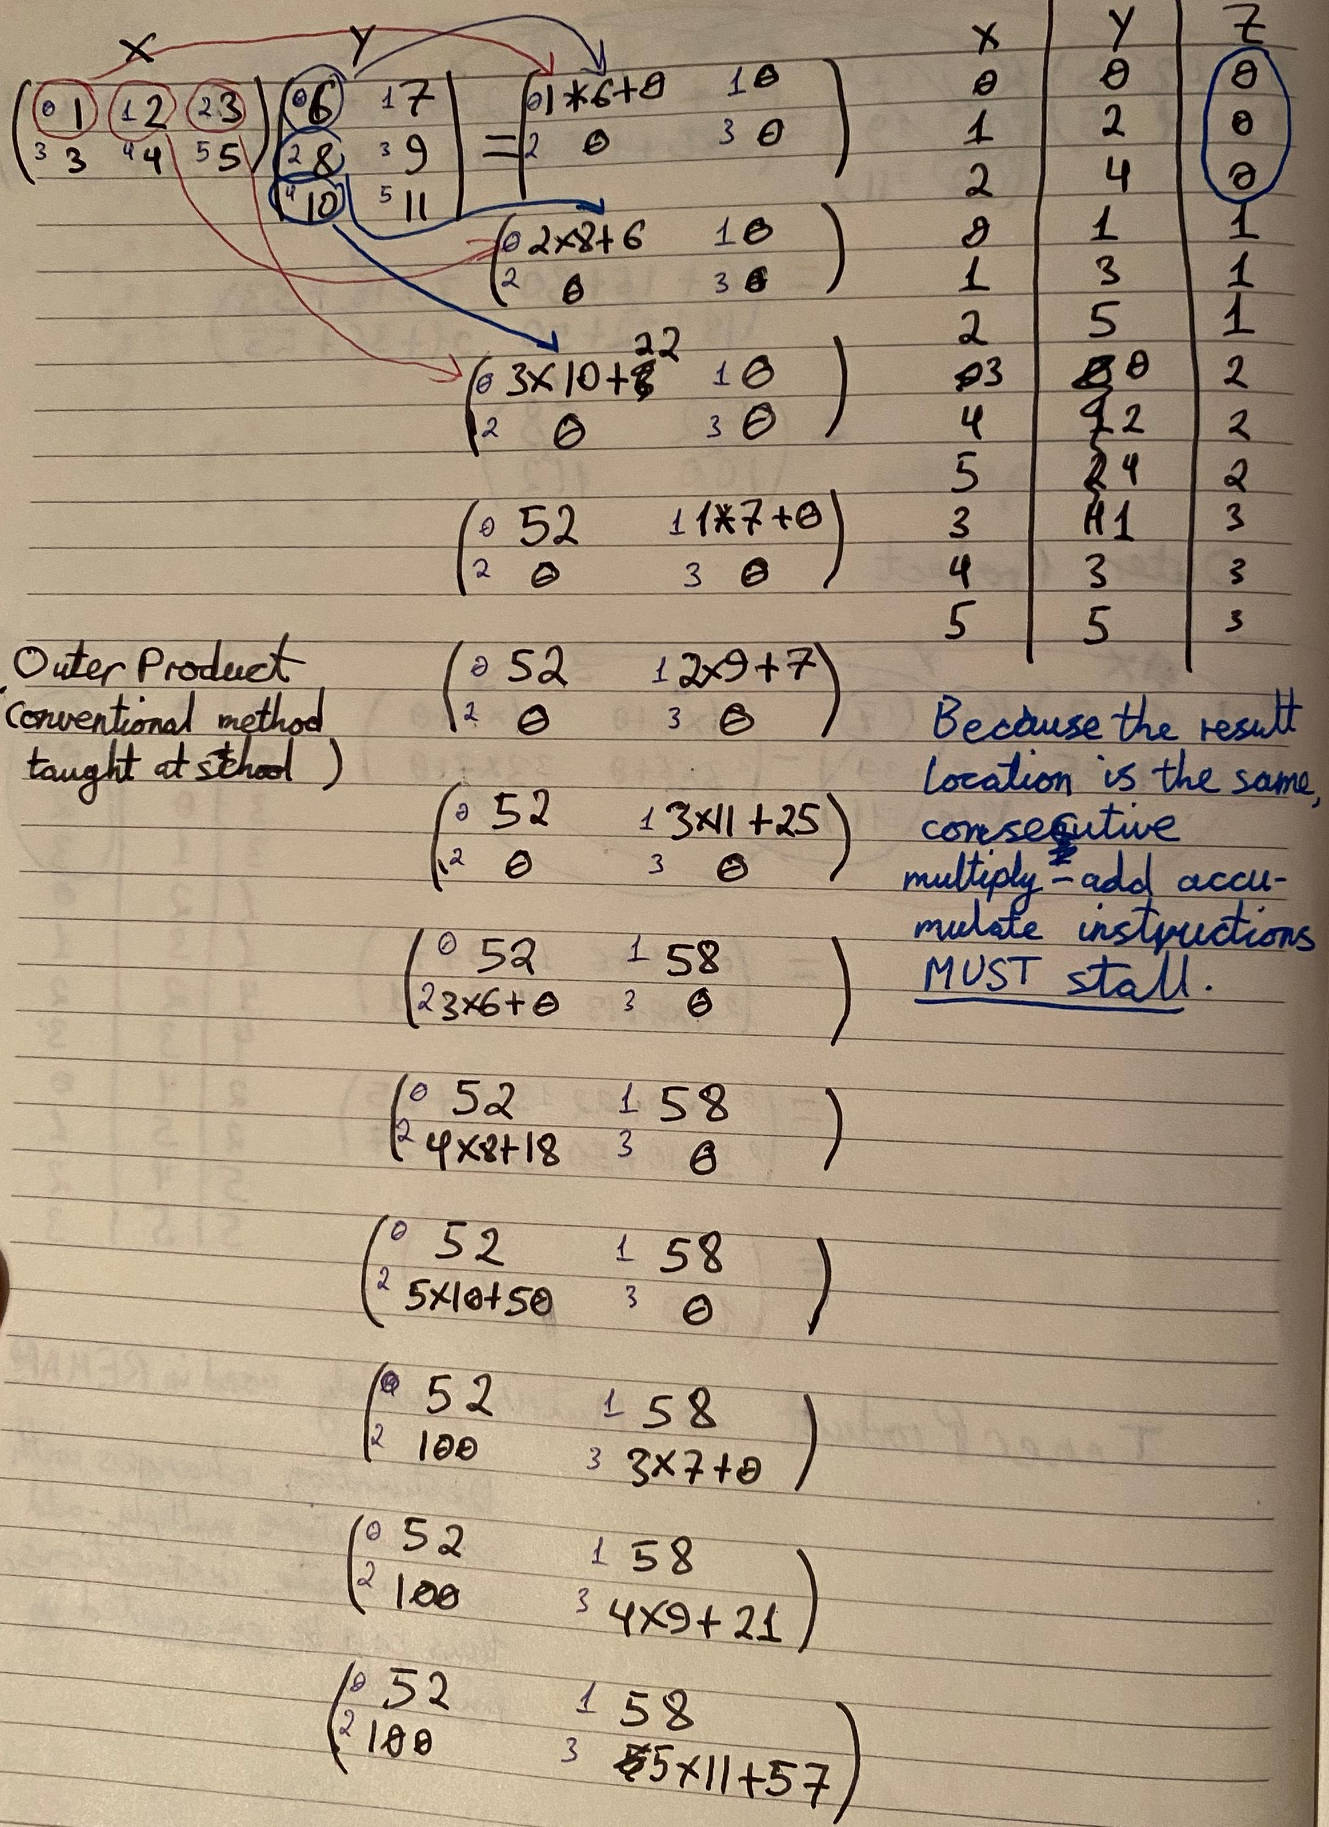 X Y
0 1 1 2 2 3 0 6 1 7 = 0 1*6+0 1 0
3 3 4 4 5 5 2 8 3 9 2 0 3 0
4 10 5 11
0 2×8+6 1 0
2 0 3 0
0 3×10+22 1 0
2 0 3 0
0 52 1 1*7+0
2 0 3 0
0 52 1 2×9+7
2 0 3 0
0 52 1 3×11+25
2 0 3 0
0 52 1 58
2 3×6+0 3 0
0 52 1 58
2 4×8+18 3 0
0 52 1 58
2 5×10+50 3 0
0 52 1 58
2 100 3 3×7+0
0 52 1 58
2 100 3 4×9+21
0 52 1 58
2 100 3 5×11+57
Outer Product
(conventional method
taught at school)
X Y Z
0 0 0
1 2 0
2 4 0
0 1 1
1 3 1
2 5 1
3 0 2
4 2 2
5 4 2
3 1 3
4 3 3
5 5 3
Because the result
location is the same,
consecutive
multiply-add accu-
mulate instructions
MUST stall.